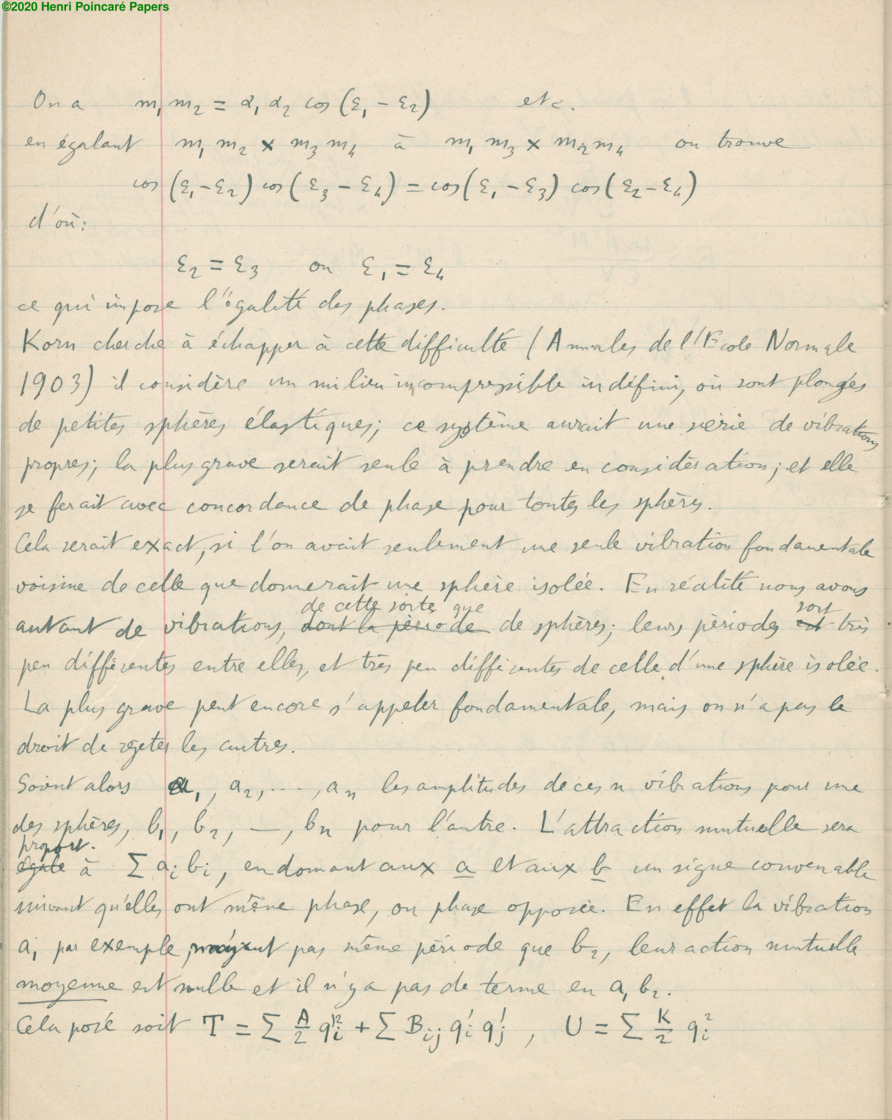 ©2020 Henri Poincaré Papers
On a m₁ m₂ = α₁ α₂ cos (ε₁ − ε₂) etc.
en égalant m₁ m₂ × m₃ m₄ à m₁ m₃ × m₂ m₄ on trouve
cos (ε₁ − ε₂) cos (ε₃ − ε₄) = cos (ε₁ − ε₃) cos (ε₂ − ε₄)
d'où:
ε₂ = ε₃ ou ε₁ = ε₄
ce qui impose l'égalité des phases.
Korn cherche à échapper à cette difficulté (Annales de l'Ecole Normale
1903) il considère un milieu incompressible indéfini, où sont plongées
de petites sphères élastiques; ce système aurait une série de vibrations
propres; la plus grave serait seule à prendre en considération; et elle
se ferait avec concordance de phase pour toutes les sphères.
Cela serait exact, si l'on avait seulement une seule vibration fondamentale
voisine de celle que donnerait une sphère isolée. En réalité nous avons
de cette sorte que sont
autant de vibrations, dont la période de sphères; leurs périodes est très
peu différentes entre elles, et très peu différentes de celle d'une sphère isolée.
La plus grave peut encore s'appeler fondamentale, mais on n'a pas le
droit de rejeter les autres.
Soient alors a₁, a₂, ..., aₙ les amplitudes de ces n vibrations pour une
des sphères, b₁, b₂, —, bₙ pour l'autre. L'attraction mutuelle sera
proport.
égale à Σ aᵢ bᵢ, en donnant aux a et aux b un signe convenable
suivant qu'elles ont même phase, ou phase opposée. En effet la vibration
a₁ par exemple, n'ayant pas même période que b₂, leur action mutuelle
moyenne est nulle et il n'y a pas de terme en a₁ b₂.
Cela posé soit T = Σ A/2 qᵢ'² + Σ Bᵢⱼ qᵢ' qⱼ' , U = Σ K/2 qᵢ²